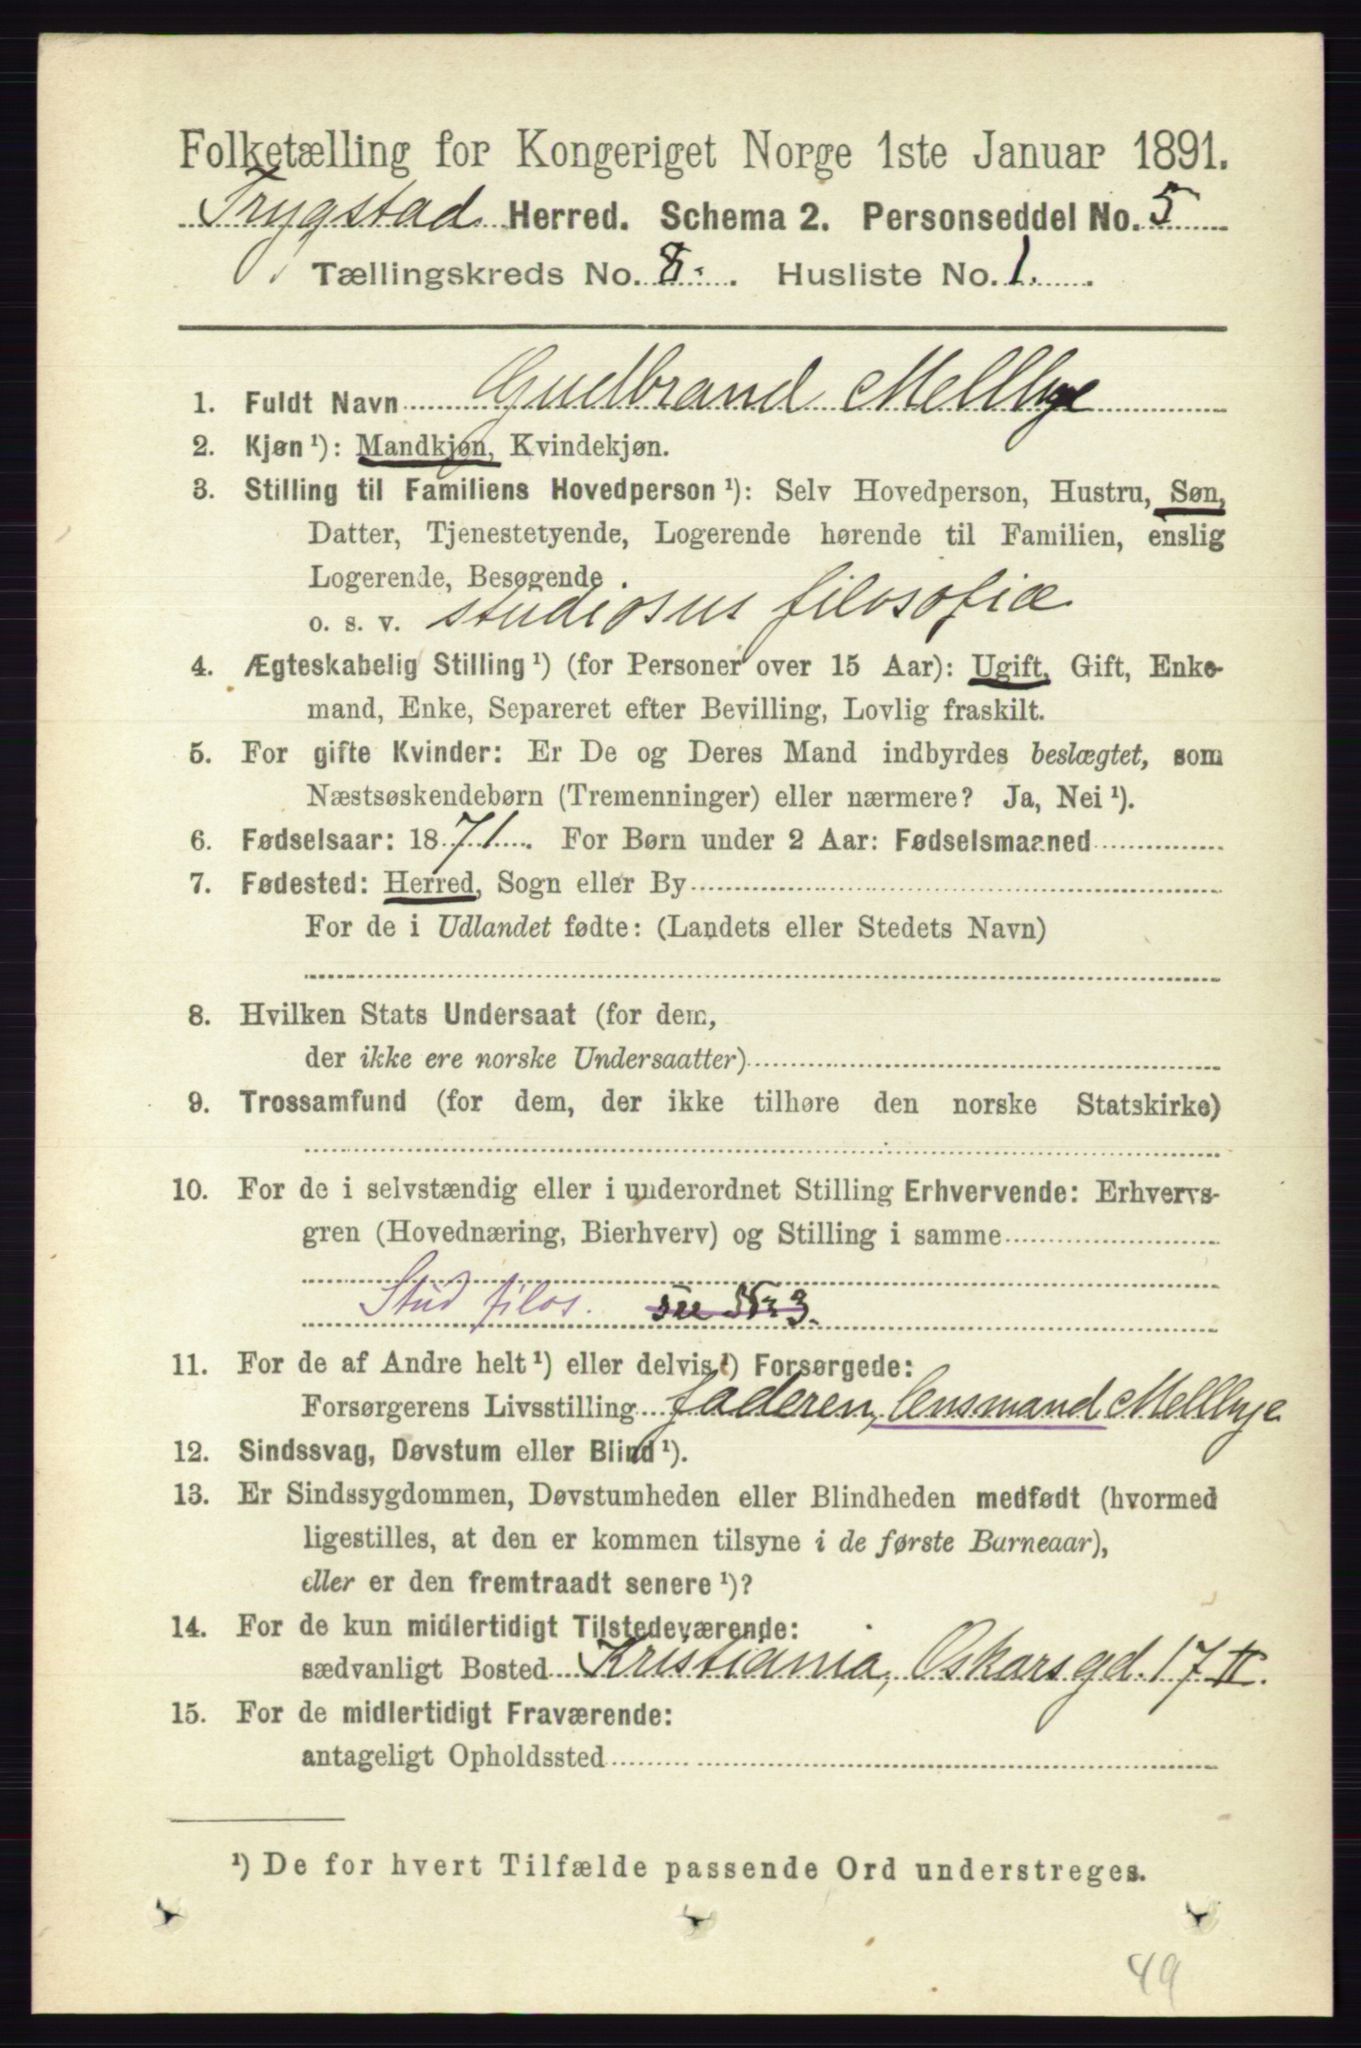 Folketælling for Kongeriget Norge 1ste Januar 1891.
Trygstad Herred. Schema 2. Personseddel No. 5
Tællingskreds No. 8. Husliste No. 1.
1. Fuldt Navn Gudbrand Mellbye
2. Kjøn ¹): Mandkjøn, Kvindekjøn.
3. Stilling til Familiens Hovedperson ¹): Selv Hovedperson, Hustru, Søn,
Datter, Tjenestetyende, Logerende hørende til Familien, enslig
Logerende, Besøgende
o. s. v. studiosus filosofiæ
4. Ægteskabelig Stilling ¹) (for Personer over 15 Aar): Ugift, Gift, Enke-
mand, Enke, Separeret efter Bevilling, Lovlig fraskilt.
5. For gifte Kvinder: Er De og Deres Mand indbyrdes beslægtet, som
Næstsøskendebørn (Tremenninger) eller nærmere? Ja, Nei ¹).
6. Fødselsaar: 1871. For Børn under 2 Aar: Fødselsmaaned
7. Fødested: Herred, Sogn eller By
For de i Udlandet fødte: (Landets eller Stedets Navn)
8. Hvilken Stats Undersaat (for dem,
der ikke ere norske Undersaatter)
9. Trossamfund (for dem, der ikke tilhøre den norske Statskirke)
10. For de i selvstændig eller i underordnet Stilling Erhvervende: Erhvervs-
gren (Hovednæring, Bierhverv) og Stilling i samme
Stud filos. see No 3.
11. For de af Andre helt ¹) eller delvis ¹) Forsørgede:
Forsørgerens Livsstilling faderen, lensmand Mellbye
12. Sindssvag, Døvstum eller Blind ¹).
13. Er Sindssygdommen, Døvstumheden eller Blindheden medfødt (hvormed
ligestilles, at den er kommen tilsyne i de første Barneaar),
eller er den fremtraadt senere ¹)?
14. For de kun midlertidigt Tilstedeværende:
sædvanligt Bosted Kristiania, Oskarsgd. 17 II.
15. For de midlertidigt Fraværende:
antageligt Opholdssted
¹) De for hvert Tilfælde passende Ord understreges.
49